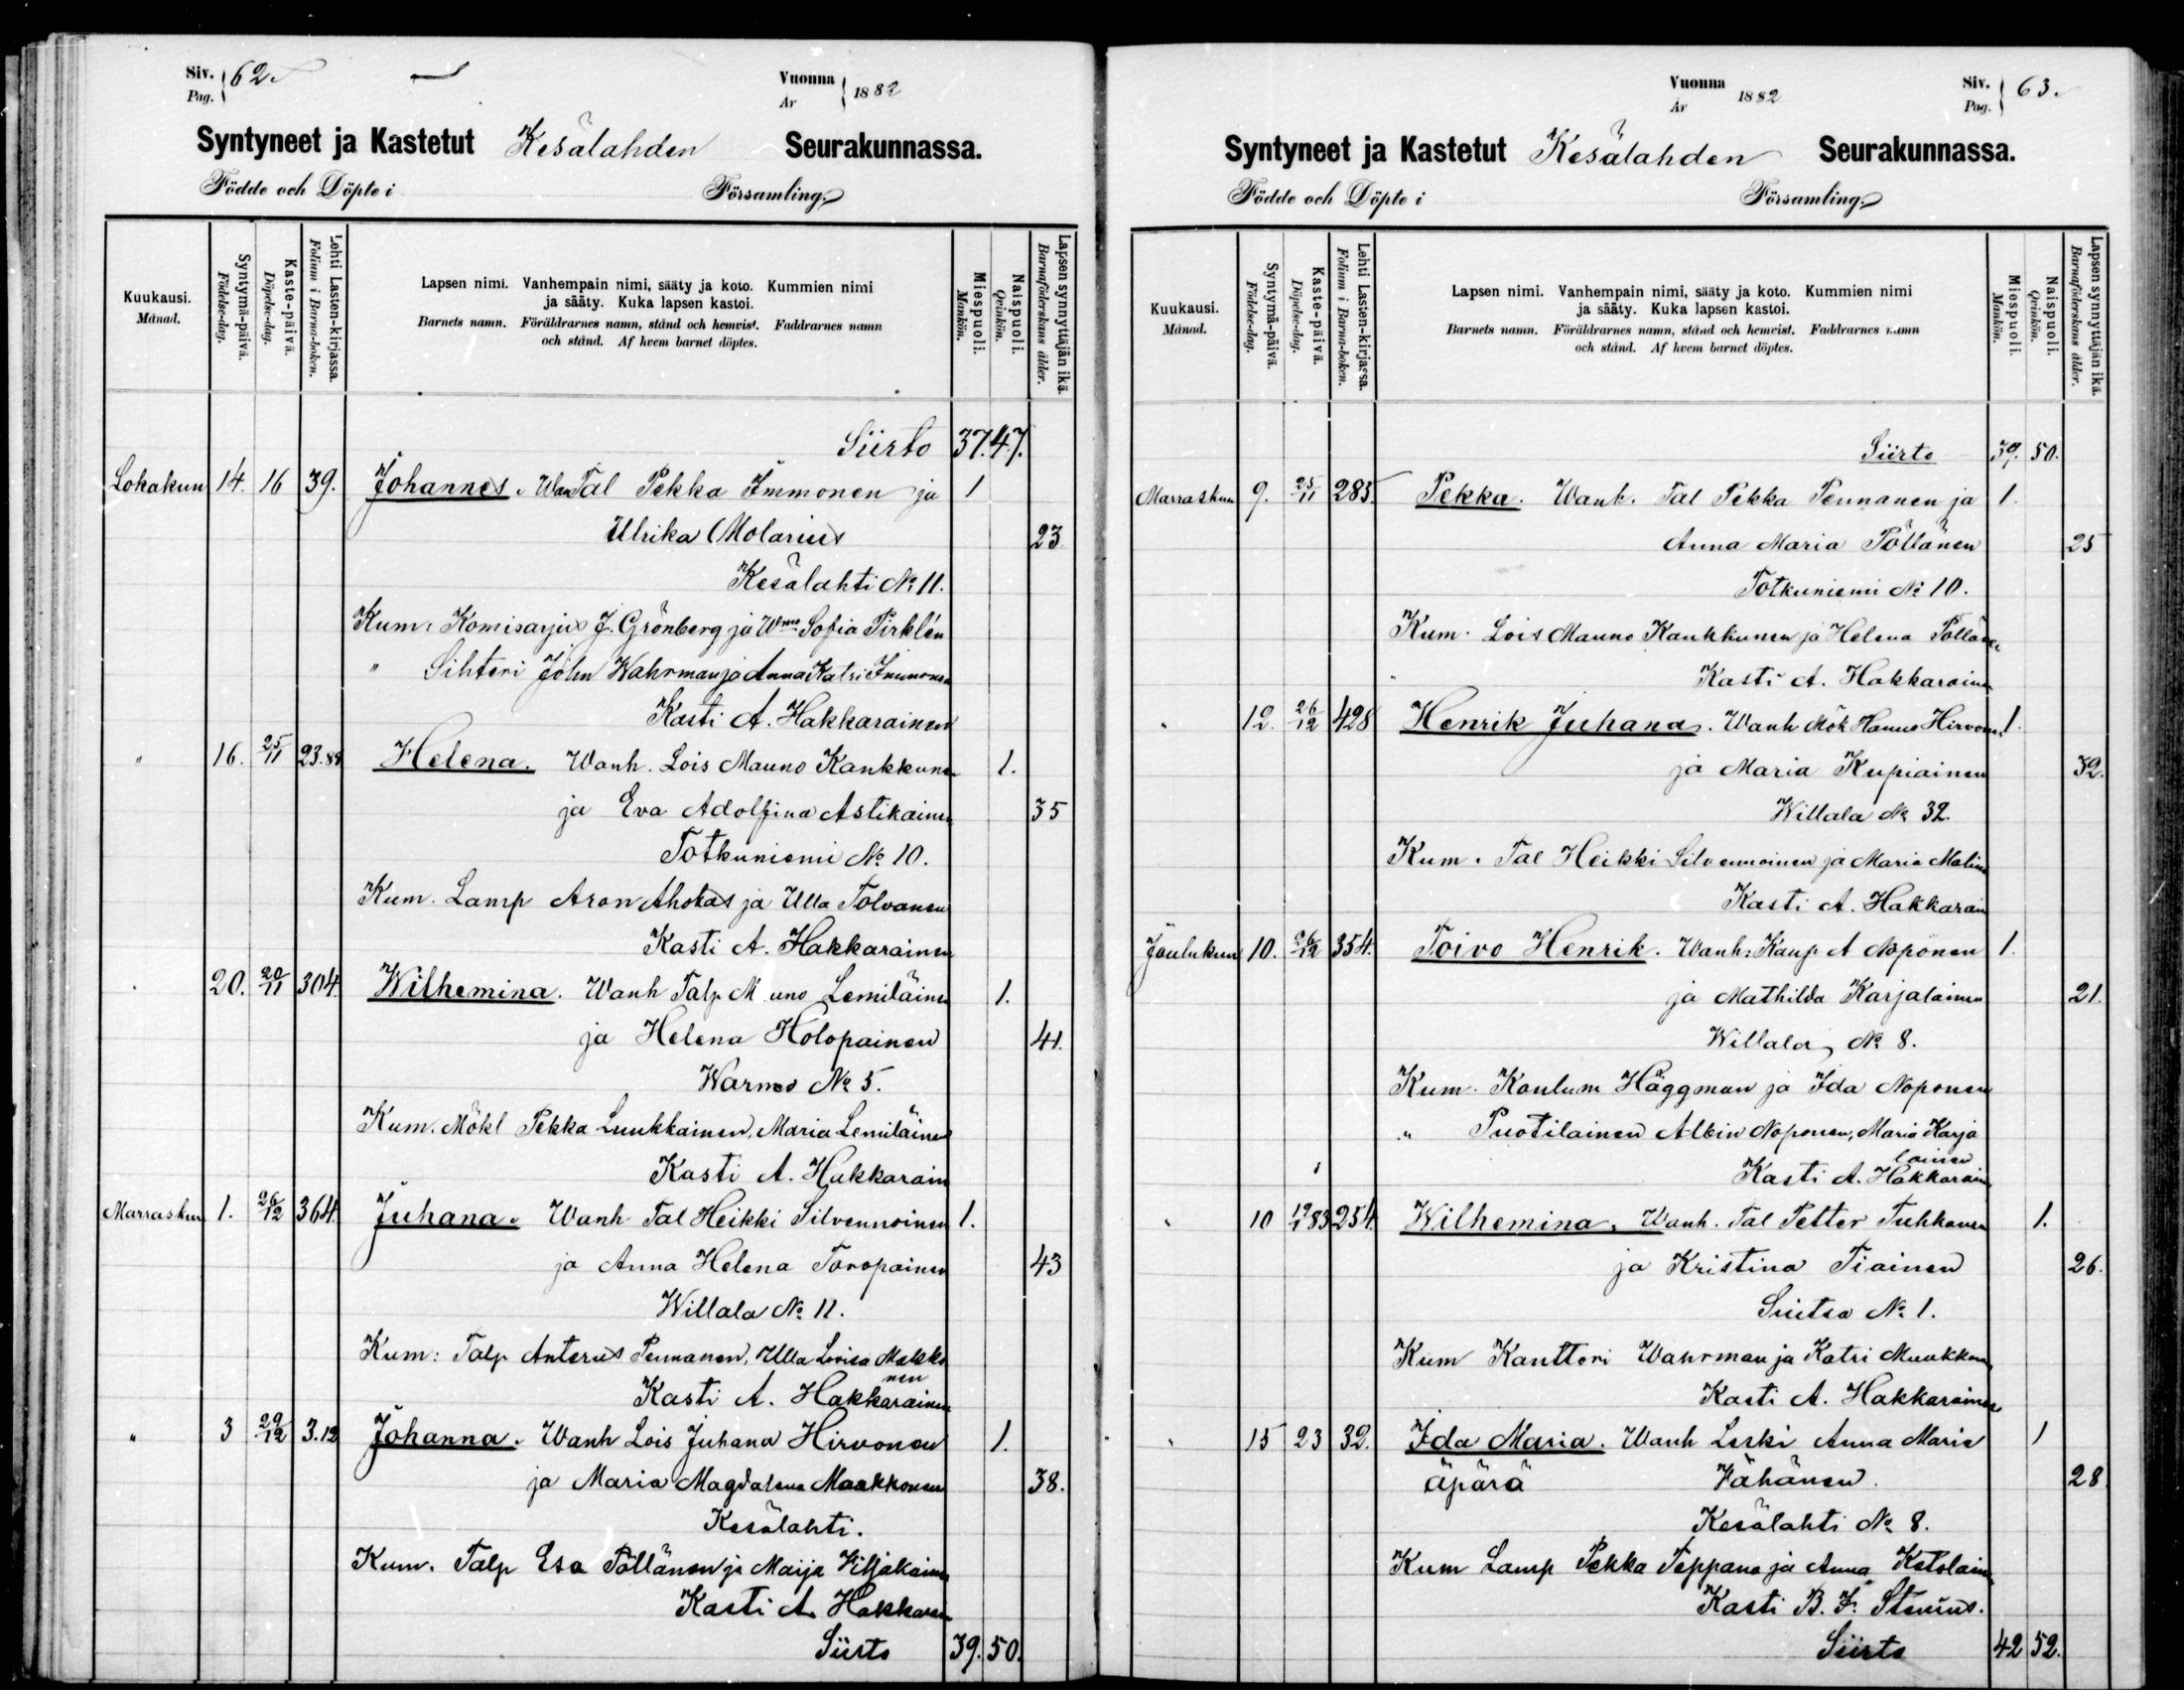 Siv. 62.
Pag.
Vuonna 1882
År
Syntyneet ja Kastetut Kesälahden Seurakunnassa.
Födde och Döpte i Församling.
Kuukausi.
Månad.
Syntymä-päivä.
Födelse-dag.
Kaste-päivä.
Döpelse-dag.
Lehti Lasten-kirjassa.
Folium i Barna-boken.
Lapsen nimi. Vanhempain nimi, sääty ja koto. Kummien nimi
ja sääty. Kuka lapsen kastoi.
Barnets namn. Föräldrarnes namn, stånd och hemvist. Faddrarnes namn
och stånd. Af hvem barnet döptes.
Miespuoli.
Mankön.
Naispuoli.
Qvinkön.
Lapsen synnyttäjän ikä.
Barnaföderskans ålder.
Siirto 37. 47.
Lokakun 14. 16 39. Johannes. Wan Tal Pekka Immonen ja 1
Ulrika Molarius 23
Kesälahti No 11.
Kum. Komisarjus J. Grönberg ja Sofia Pirklén
" Sihteri John Wahrman ja Anna Katri Immonen
Kasti A. Hakkarainen
" 16. 25/11 23.88 Helena. Wanh. Lois Mauno Kankkunen 1.
ja Eva Adolfina Astikainen 35
Totkuniemi No 10.
Kum. Lamp Aron Ahokas ja Ulla Tolvanen
Kasti A. Hakkarainen
20. 20/11 304 Wilhemina. Wanh Talp M uno Lemiläinen 1.
ja Helena Holopainen 41.
Warmo No 5.
Kum. Mökl Pekka Luukkainen, Maria Lemiläinen
Kasti A. Hakkarain
Marraskun 1. 26/12 364 Juhana. Wanh Tal Heikki Silvennoinen 1.
ja Anna Helena Toropainen 43
Willala No 11.
Kum: Talp Anterus Pennanen, Ulla Lovisa Makko
nen
Kasti A. Hakkarainen
" 3 29/12 3.12 Johanna. Wanh Lois Juhana Hirvonen 1.
ja Maria Magdalena Maakkonen 38.
Kesälahti.
Kum. Talp Esa Pöllänen ja Maija Viljakainen
Kasti A. Hakkaren
Siirto 39. 50.
Vuonna 1882
År
Siv. 63.
Pag.
Syntyneet ja Kastetut Kesälahden Seurakunnassa.
Födde och Döpte i Församling.
Kuukausi.
Månad.
Syntymä-päivä.
Födelse-dag.
Kaste-päivä.
Döpelse-dag.
Lehti Lasten-kirjassa.
Folium i Barna-boken.
Lapsen nimi. Vanhempain nimi, sääty ja koto. Kummien nimi
ja sääty. Kuka lapsen kastoi.
Barnets namn. Föräldrarnes namn, stånd och hemvist. Faddrarnes namn
och stånd. Af hvem barnet döptes.
Miespuoli.
Mankön.
Naispuoli.
Qvinkön.
Lapsen synnyttäjän ikä.
Barnaföderskans ålder.
Siirto 39. 50.
Marraskun 9. 25/11 285 Pekka. Wanh. Tal Pekka Pennanen ja 1.
Anna Maria Pöllänen 25
Totkuniemi No 10.
Kum. Lois Mauno Kankkunen ja Helena Pöllänen
Kasti A. Hakkarainen
" 12. 26/12 428 Henrik Juhana. Wanh Mök Hannes Hirvonen 1.
ja Maria Kupiainen 32.
Willala No 32.
Kum. Tal Heikki Silvennoinen ja Maria Malin
Kasti A. Hakkarain
Joulukun 10. 26/12 354. Toivo Henrik. Wanh: Kaup A Noponen 1.
ja Mathilda Karjalainen 21.
Willala No 8.
Kum. Koulum Häggman ja Ida Noponen
" Puotilainen Albin Noponen, Maria Karja
lainen
Kasti A. Hakkarain
" 10 19/1 83 254. Wilhemina. Wanh. Tal Petter Tuhkanen 1.
ja Kristina Tiainen 26.
Suitsa No 1.
Kum Kanttori Wahrman ja Katri Muukkonen
Kasti A. Hakkarainen
" 15 23 32. Ida Maria. Wanh Leski Anna Maria 1
äpärä Vähänen. 28
Kesälahti No 8.
Kum Lamp Pekka Teppana ja Anna Ketolain
Kasti B. F. Stenius.
Siirto 42 52.